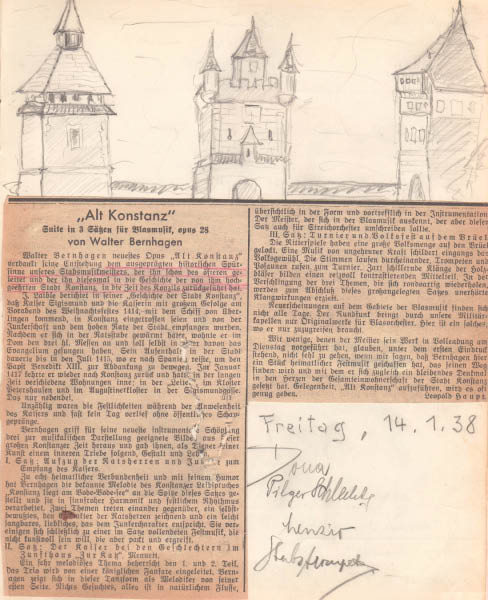 „Alt Konstanz“
Suite in 3 Sätzen für Blasmusik, opus 28
von Walter Bernhagen
Walter Bernhagens neuestes Opus „Alt Konstanz“
verdankt seine Entstehung dem ausgeprägten historischen Spür-
sinne unseres Stabsmusikmeisters, der ihn schon des öfteren ge-
leitet und der ihn diesesmal in die Geschichte der von ihm hoch-
geschätzten Stadt Konstanz, in die Zeit des Konzils zurückgeführt hat.
J. Laible berichtet in seiner „Geschichte der Stadt Konstanz“,
daß Kaiser Sigismund und die Kaiserin mit großem Gefolge am
Vorabend des Weihnachtsfestes 1414, mit dem Schiff von Über-
lingen kommend, in Konstanz eingetroffen seien und von der
Junkerschaft und dem hohen Rate der Stadt empfangen wurden.
Nachdem er sich in der Ratsstube gewärmt hätte, wohnte er im
Dom den drei hl. Messen an und soll selbst in der daran das
Evangelium gesungen haben. Sein Aufenthalt in der Stadt
dauerte bis in den Juli 1415, wo er nach Spanien reiste, um den
Papst Benedikt XIII. zur Abdankung zu bewegen. Im Januar
1417 kehrte er wieder nach Konstanz zurück und hatte in der langen
Zeit verschiedene Wohnungen inne: in der „Leiter“, im Kloster
Petershausen und im Augustinerkloster in der Sigismundgasse.
Das nur nebenbei.
Unzählig waren die Festlichkeiten während der Anwesenheit
des Kaisers und fast kein Tag verlief ohne öffentliches Schau-
gepränge.
Bernhagen griff für seine neueste instrumentale Schöpfung
drei zur musikalischen Darstellung geeignete Bilder aus dieser
großen Konstanzer Zeit heraus und gab ihnen, als Diener seiner
Kunst einem inneren Triebe folgend, Gestalt und Leben.
I. Satz: Aufzug der Ratsherren und Junker zum
Empfang des Kaisers.
Zu echt heimatlicher Verbundenheit und mit seinem Humor
hat Bernhagen die bekannte Melodie des Konstanzer Leibspruches
„Konstanz liegt am Bode-Bode-See“ an die Spitze dieses Satzes ge-
stellt und sie in sinnfroher Harmonik und festlichem Rhythmus
verarbeitet. Zwei Themen treten einander gegenüber, ein selbst-
bewußtes, den Charakter der Ratsherren zeichnend und ein leicht
sangbares, liebliches, das dem Junkercharakter entspricht. Sie ver-
einigen sich schließlich zu einer im Satze vollendeten Festmusik, die
nicht kunstvoll sein will, die aber packt und ergreift.
II. Satz: Der Kaiser bei den Geschlechtern im
Zunfthaus „Zur Katz“, Menuett.
Ein sehr melodiöses Thema beherrscht den 1. und 2. Teil.
Das Trio wird von einer königlichen Fanfare eingeleitet. Bern-
hagen zeigt sich in dieser Tanzform als Melodiker von seiner
besten Seite. Nichts Gesuchtes, alles ist in natürlichem Flusse,
übersichtlich in der Form und vortrefflich in der Instrumentation.
Der Meister, der sich in der Blasmusik auskennt, der aber diesen
Satz auch für Streichorchester umschreiben sollte.
III. Satz: Turnier und Volksfest auf dem Brüel.
Die Ritterspiele haben eine große Volksmenge auf den Brüel
gelockt. Eine Musik von ungeahnter Kraft schildert eingangs das
Volksgewühl. Die Stimmen laufen durcheinander, Trompeten und
Posaunen rufen zum Turnier. Zart schildernde Klänge der Holz-
bläser bilden einen reizvoll kontrastierenden Mittelteil. In der
Verdichtung der drei Themen, die sich rondoartig wiederholen,
werden zum Abschluß dieses großangelegten Satzes unerhörte
Klangwirkungen erzielt.
Neuerscheinungen auf dem Gebiete der Blasmusik finden sich
nicht alle Tage. Der Rundfunk bringt durch unsere Militär-
kapellen nur Originalwerke für Blasorchester. Hier ist ein solches,
wo er nur zuzugreifen brauch.
Mit wenig, denen der Meister sein Werk in Vollendung am
Dienstag vorgeführt hat, glauben, unter dem ersten Eindruck
stehend, nicht fehl zu gehen, wenn wir sagen, daß Bernhagen hier
ein Stück heimatlicher Festmusik geschrieben hat, das seinen Weg
finden wird und mit dem er sich zugleich ein bleibendes Denkmal
in den Herzen der Gesamteinwohnerschaft der Stadt Konstanz
gesetzt hat. Gelegenheit, „Alt Konstanz“ aufzuführen, wird es oft
genug geben.
Leopold Haupt.
Freitag, 14.1.38